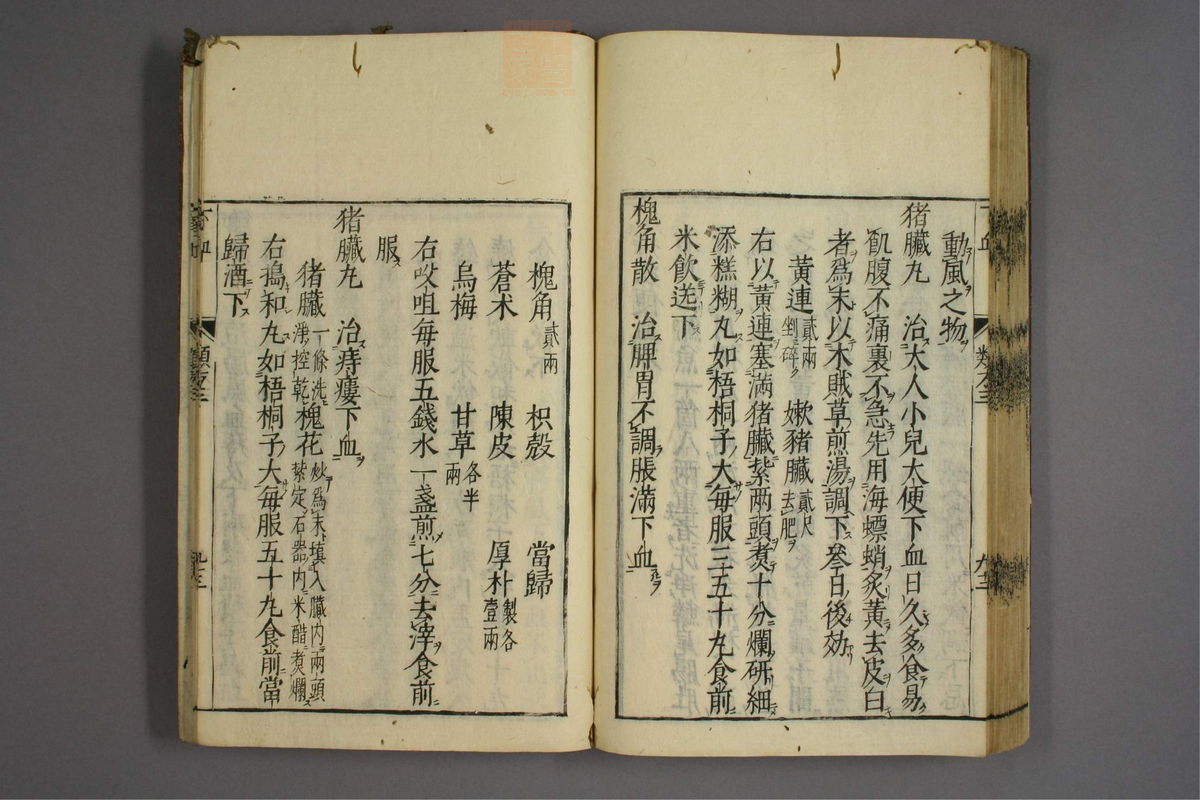 動風之物
猪臟丸 治大人小兒大便下血日久多食易
飢腹不痛裏不急先用海螵蛸炙黃去皮白
者爲末以木賊草煎湯調下叄日後効
黃連貳兩剉碎 嫰猪臟貳尺去肥
右以黃連塞滿猪臟紮兩頭煑十分爛研細
添糕糊丸如梧桐子大每服三五十丸食前
米飲送下
槐角散 治脾胃不調脹滿下血
槐角貳兩 枳殼 當歸
蒼朮 陳皮 厚朴製各壹兩
烏梅 甘草各半兩
右㕮咀每服五錢水一盞煎七分去滓食前
服
猪臟丸 治痔瘻下血
猪臟一條洗淨控乾 槐花炒爲末塡入臟內兩頭紮定石器內米醋煑爛
右搗和丸如梧桐子大每服五十丸食前當
歸酒下